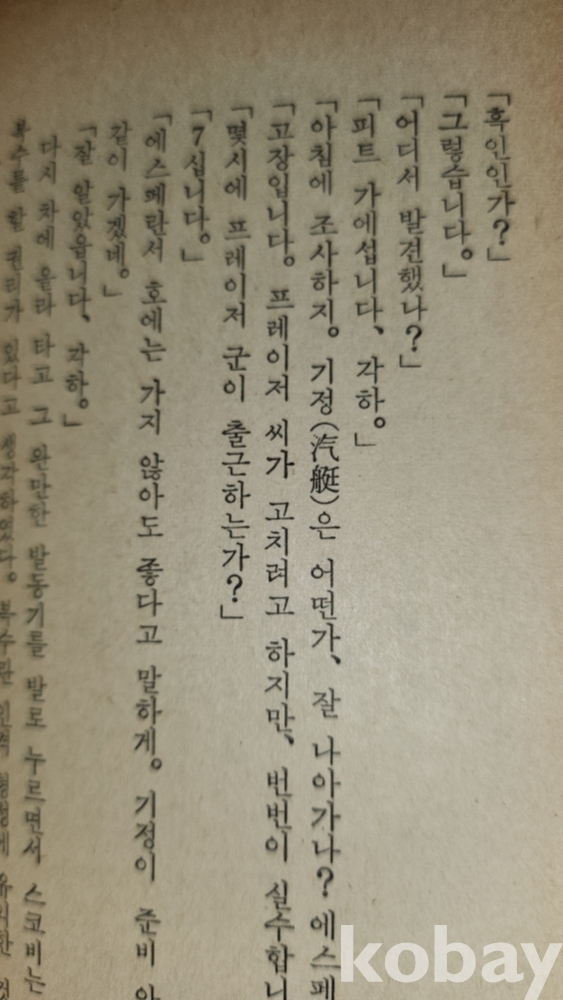 「흑인인가?」
「그렇습니다。」
「어디서 발견했나?」
「피트 가에섭니다、 각하。」
「아침에 조사하지。 기정(汽艇)은 어떤가、 잘 나아가나? 에스페
「고장입니다。 프레이저 씨가 고치려고 하지만、 번번이 실수합니
「몇시에 프레이저 군이 출근하는가?」
「7십니다。」
「에스페란서 호에는 가지 않아도 좋다고 말하게。 기정이 준비
같이 가겠네。」
「잘 알았읍니다、 각하。」
다시 차에 올라 타고 그 완만한 발동기를 발로 누르면서 스코비는
복수를 할 권리가 있다고 생각하였다。 복수란
kobay